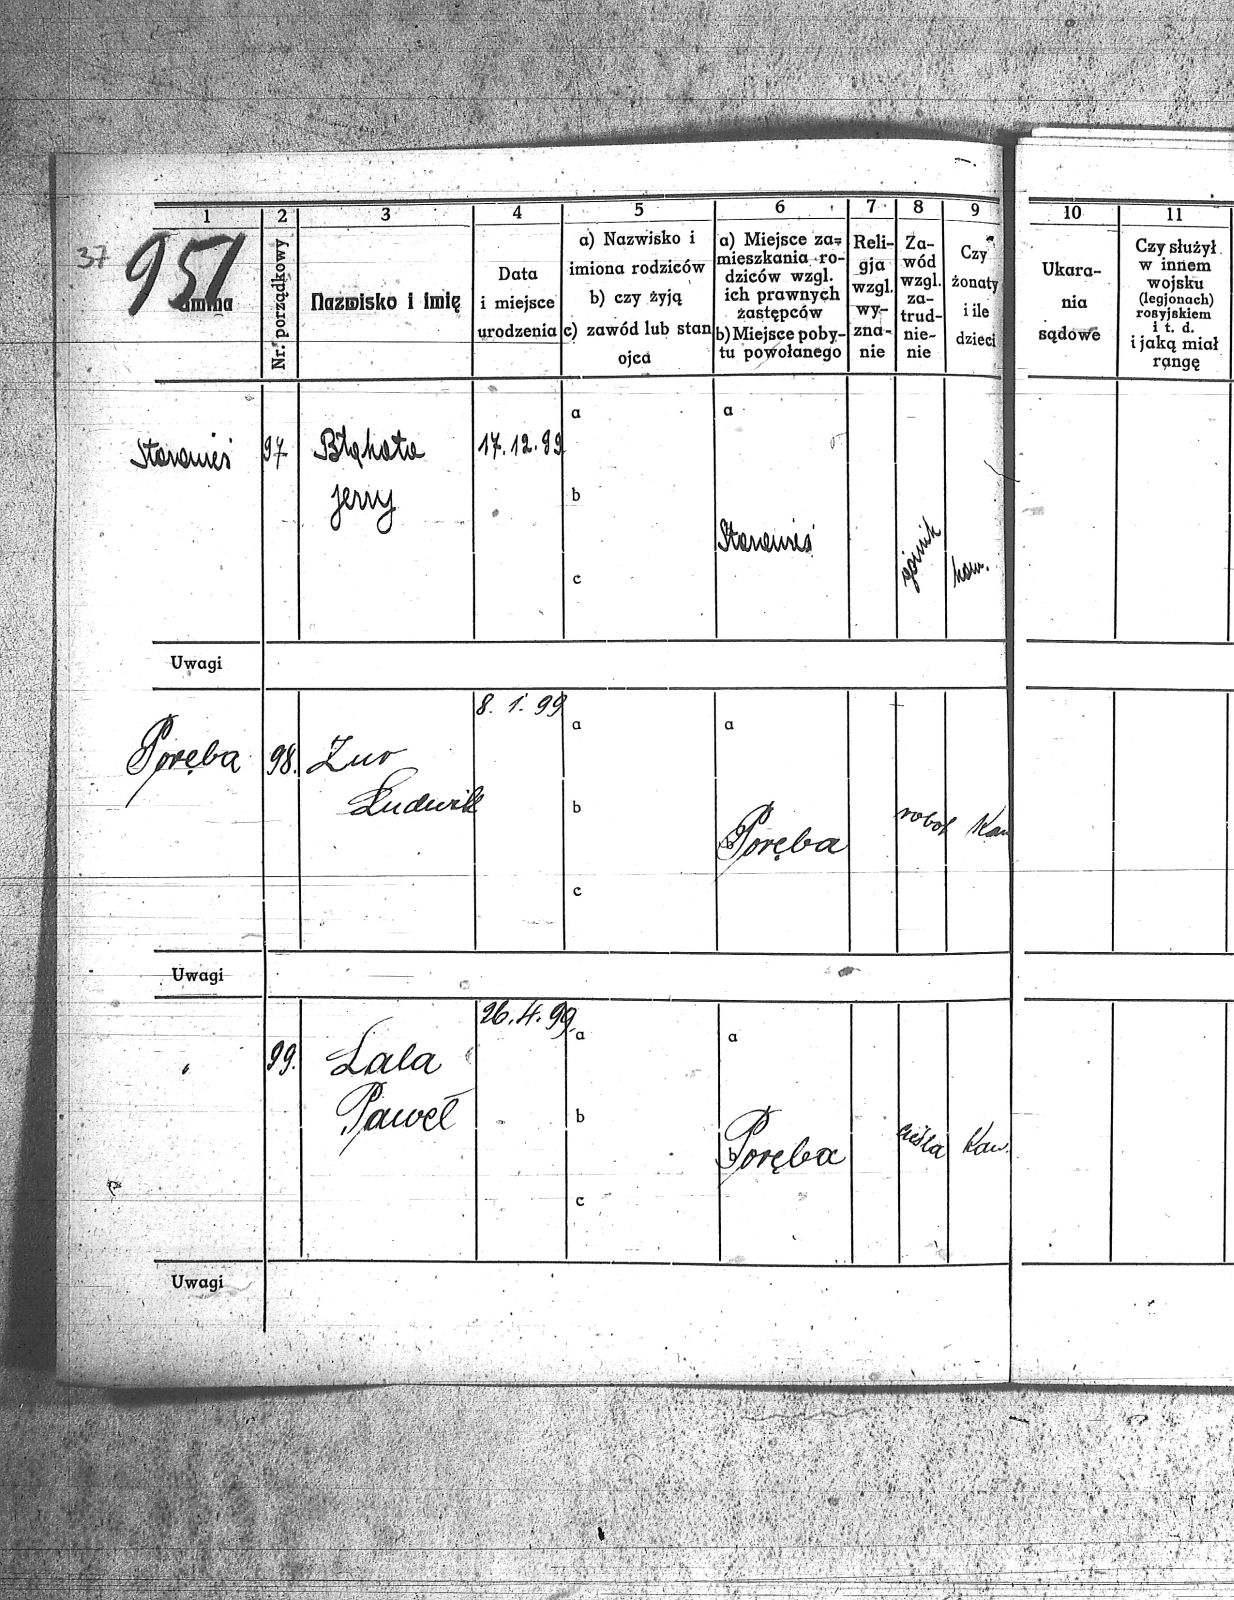 37
951
1 2 3 4 5 6 7 8 9 10 11
Gmina
Nr. porządkowy
Nazwisko i imię
Data
i miejsce
urodzenia
a) Nazwisko i
imiona rodziców
b) czy żyją
c) zawód lub stan
ojca
a) Miejsce za=
mieszkania ro-
dziców wzgl.
ich prawnych
zastępców
b) Miejsce poby-
tu powołanego
Reli-
gja
wzgl.
wy-
zna-
nie
Za-
wód
wzgl.
za-
trud-
nie-
nie
Czy
żonaty
i ile
dzieci
Ukara-
nia
sądowe
Czy służył
w innem
wojsku
(legjonach)
rosyjskiem
i t. d.
i jaką miał
rangę
a a
Starawieś 97. 17.12.99
Jerzy b
Starawieś
górnik kaw.
c
Uwagi
8.1.99
a a
Poręba 98. Żur
Ludwik b
b Poręba robot Kaw
c
Uwagi
26.4.99.
a a
" 99. Lala
Paweł b
b Poręba cieśla Kaw.
c
Uwagi